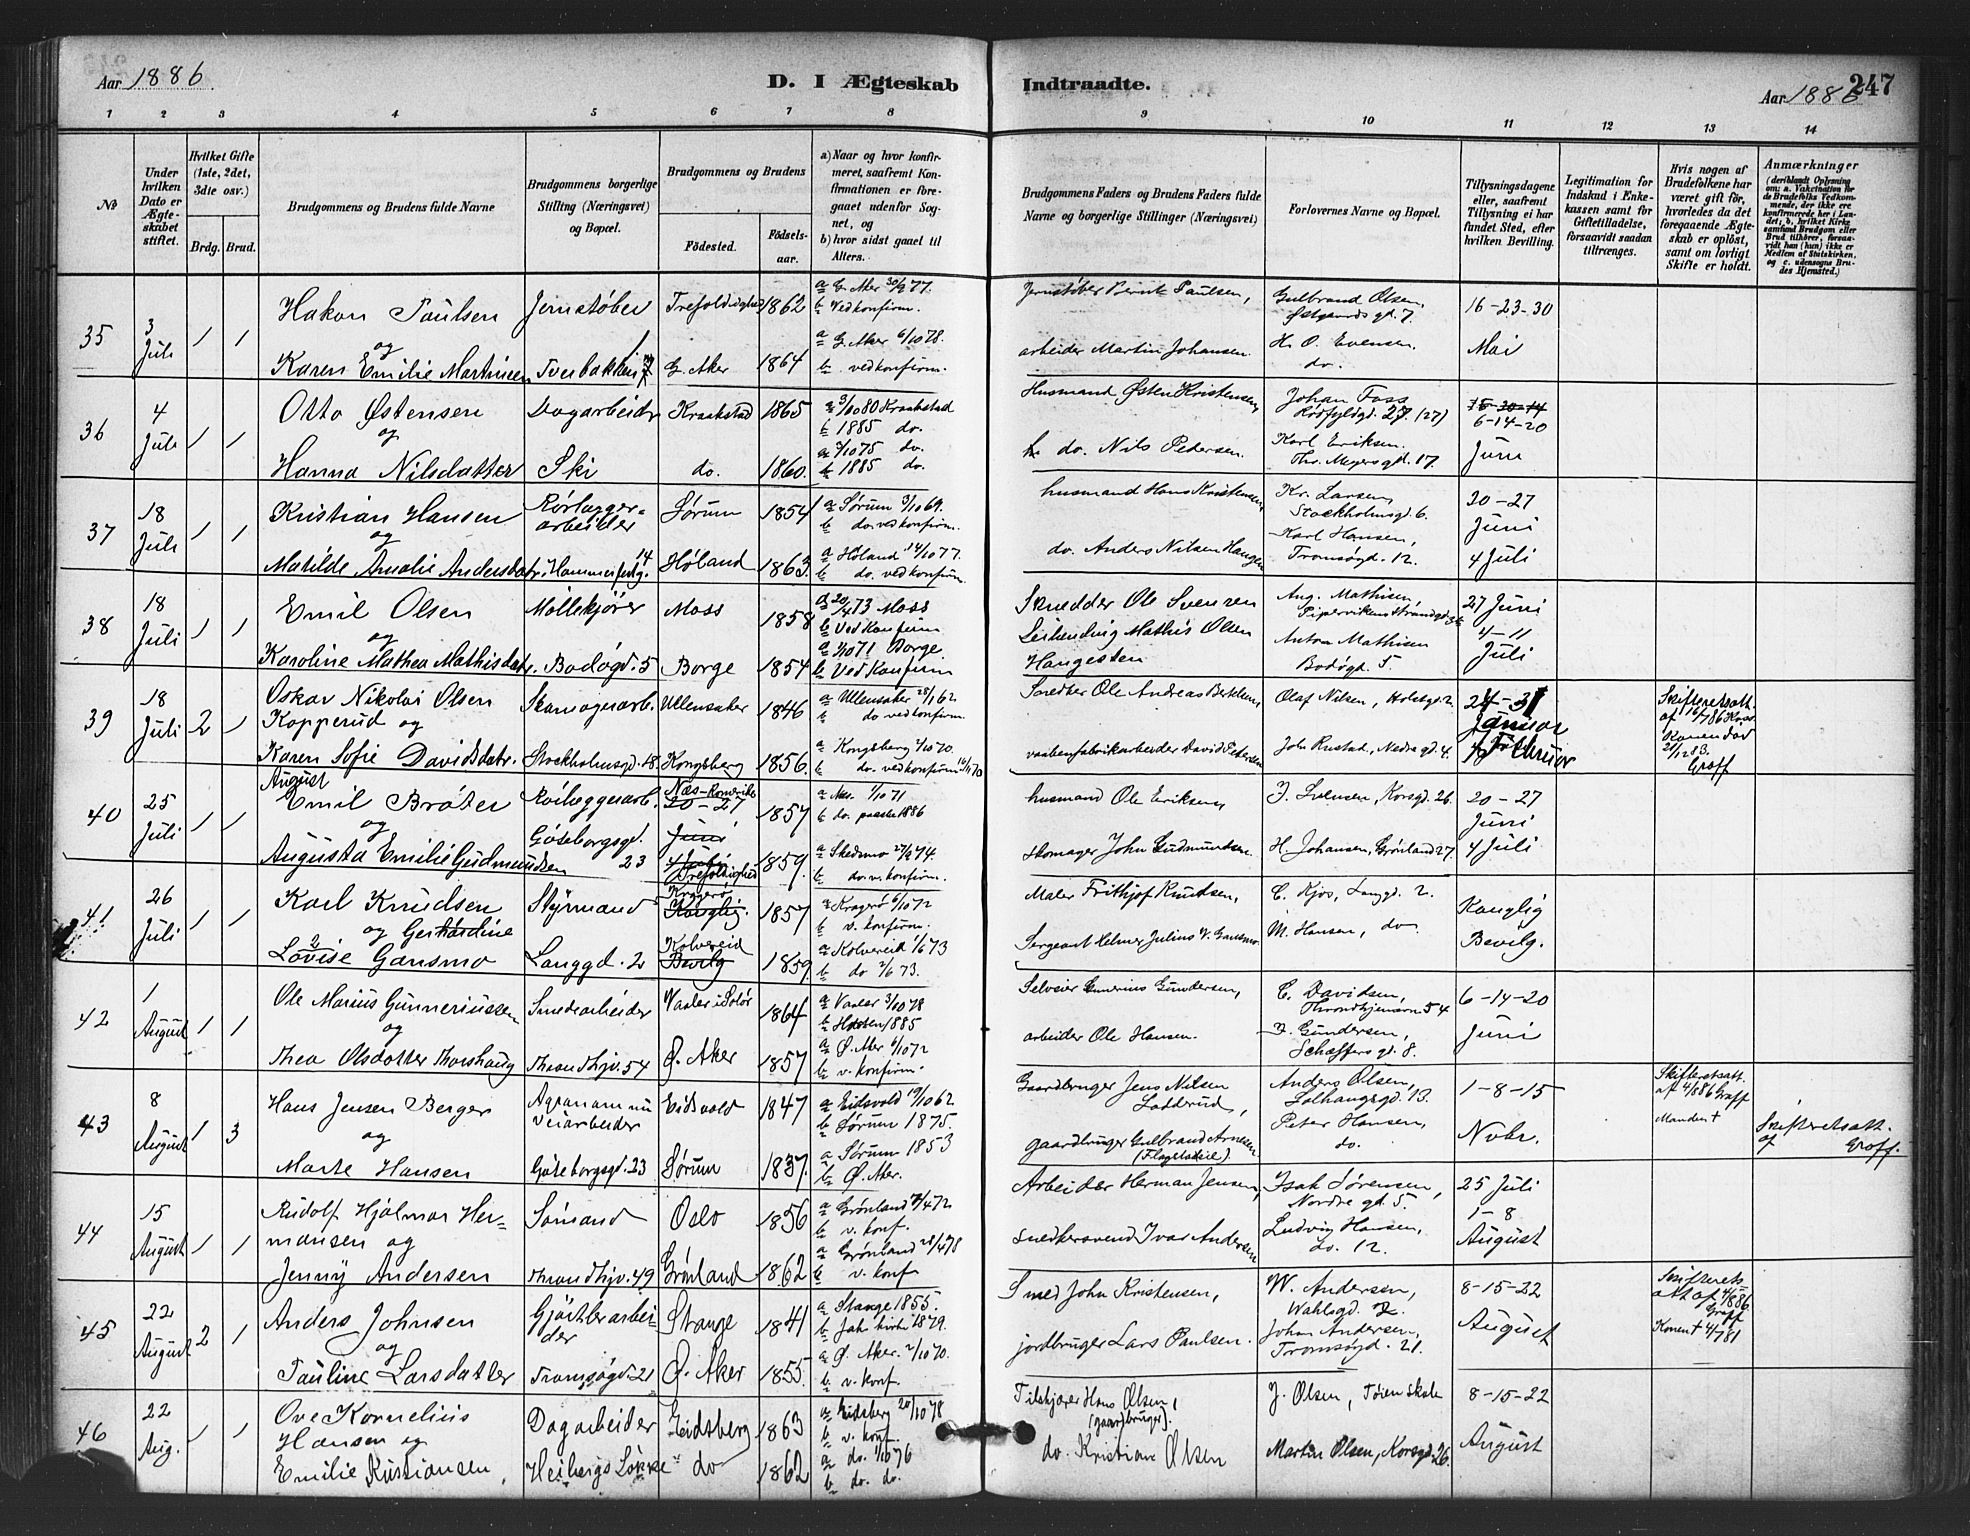 Aar 1886
D. I Ægteskab
Indtraadte.
Aar 1886
247
1 2 3 4 5 6 7 8 9 10 11 12 13 14
No
Under hvilken Dato er Ægteskabet stiftet.
Hvilket Gifte (1ste, 2det, 3die osv.)
Brdg. Brud.
Brudgommens og Brudens fulde Navne
Brudgommens borgerlige Stilling (Næringsvei) og Bopæl.
Brudgommens og Brudens
Födested.
Födsels-aar.
a) Naar og hvor konfirmeret, saafremt Konfirmationen er foregaaet udenfor Sognet, og
b) hvor sidst gaaet til Alters.
Brudgommens Faders og Brudens Faders fulde Navne og borgerlige Stillinger (Næringsvei)
Forlovernes Navne og Bopæl.
Tillysningsdagene eller, saafremt Tillysning ei har fundet Sted, efter hvilken Bevilling.
Legitimation for Indskud i Enkekassen samt for Giftetilladelse, forsaavidt saadan tiltrænges.
Hvis nogen af Brudefolkene har været gift før, hvorledes da det foregaaende Ægteskab er oplöst, samt om lovligt Skifte er holdt.
Anmærkninger
35 3 Juli 1 1 Hakon Paulsen Jernstøber Trefoldighed 1862 a G. Aker 30/9 77.
b Vedkonfirm.
Jernstøber Bernt Paulsen, Gulbrand Olsen, Østgaards gd. 7. 16-23-30
og
Karen Emilie Martinsen Tverbakken 7 G. Aker 1864 a G. Aker 6/10 78.
b vedkonfirm.
arbeider Martin Johansen. H. O. Evensen. do. Mai
36 4 Juli 1 1 Otto Østensen Dagarbeidr Kraakstad 1865 a 3/10 80 Kraakstad
b 1885 do.
Husmand Østen Kristensen, Johan Foss 27 (27) 6-14-20
og
Hanna Nilsdatter Ski do. 1860. a 7/10 75 do.
b 1885 do.
do. Nils Pedersen. Karl Eriksen. Thv. Meyersgd. 17. Juni
37 18 Juli 1 1 Kristian Hansen Rörlægger=arbeider Sørum 1854 a Sørum 3/10 69.
b do. vedkonfirm.
husmand Hans Kristensen Kr. Larsen, Stockholmsgd. 6. 20-27 Juni
og
Matilde Amalie Andersdatr. Hammerfestg. 14 Høland 1863. a Høland 14/10 77.
b do. vedkonfirm.
do. Anders Nilsen Haugen Karl Hansen, Tromsøgd. 12. 4 Juli
38 18 Juli 1 1 Emil Olsen Møllekjører Moss 1858 a 20/4 73 Moss
b Ved Konfirm
Ole Svensen Aug. Mathisen, 27 Juni
og
Karoline Mathea Mathisdatr. Bodøgd. 5 Borge 1854 a 1/10 71 Borge
b Ved Konfirm
Mathis Olsen Haugesten Anton Mathisen Bodøgt. 5. 4-11 Juli
39 18 Juli 2 1 Oskar Nikolai Olsen Kopperud og Skomagerarb. Ullensaker 1846 a Ullensaker 25/1 62
b do vedkonfirm.
Snedker Ole Andreas Bertelsen, Olaf Nilsen, Holstgd. 2. 24-31 Januar Skifteretsatt. af 16/7 86
Karen Sofie Davidsdatr. Stockholmsgd. 18. Kongsberg 1856. a Kongsberg 2/10 70.
b do. vedkonfirm.
vaabenfabrikarbeider David Petersen Joh. Rustad, Nedregd. 4. 7 Februar Graff
40 25 Juli 1 1 August Emil Bråten Rörlæggerarb. Næs-Romerike 20-27 Juni 1857 a Næs. 1/10 71
b do. paaske 1886
husmand Ole Eriksen, J. Svensen, Korsgd. 26. 20-27 Juni
og
Augusta Emilie Gudmundsen Göteborgsgd. 23 Trefoldighed 1859. a Skedsmo 27/9 74.
b do. v. konfirm.
skomager John Gudmundsen. H. Johansen, Grönland 27. 4 Juli
41 26 Juli 1 1 Karl Knudsen Styrmand Kragerø Konglig. 1857 a Kragerø 6/10 72
b v. konfirm.
Maler Frithjof Knudsen, C. Kjos, Langgd. 2. Konglig
og Gerhardine
Lovise Gansmo Langgd. 2 Kolvereid Bevilg 1859. a Kolvereid 1/6 73
b do 2/6 73.
Sergeant Helmer Julius V. Gansmo. M. Hansen, do. Bevilg.
42 1 August 1 1 Ole Marius Gunneriussen Smedarbeider Vaaler i Solör 1864 a Vaaler 3/10 78
b 1885
Selveier Gunerius Gundersen, C. Davidsen, Throndhjemsvn 54 6-14-20
og
Thea Olsdatter Thorshaug Throndhjv. 54 Ø. Aker 1857 a Ø. Aker 6/10 72
b v. konfirm.
arbeider Ole Hansen. J. Gundersen, Schæffersgd. 8. Juni
43 8 August 1 3 Hans Jensen Berger Veiarbeider Eidsvold 1847 a Eidsvold 19/10 62
b Sørum 1875.
Gaardbruger Jens Nilsen Lodderud, Anders Olsen, 13. 1-8-15 Skifteretsatt. af 4/8 86 Graff
Manden †
og
Marte Hansen Göteborgsgd. 23 Sørum 1837. a Sørum 1853
b Ø. Aker.
gaardbruger Gulbrand Arnesen Peter Hansen, do. Novbr. Skifteretsatt. af Graff.
44 15 August 1 1 Rudolf Hjalmar Hermansen og Sømand Oslo 1856 a Grønland 7/4 72
b v. konf.
Arbeider Herman Jensen, Isak Sørensen, Nordre gd. 5. 25 Juli 1-8
Jenny Andersen Throndhjv. 49 Grönland 1862 a Grønland 28/4 78
b v. konf
snedkersvend Ivar Andersen Ludvig Hansen, do. 12. August
45 22 August 2 1 Anders Johnsen Gjørtlerarbeider Stange 1841 a Stange 1855.
b Jak. kirke 1879.
Smed John Kristensen, W. Andersen, Wahlsgd. 2. 8-15-22 Skifterets att af 4/8 86 Graff
Konen † 4/7 81
og
Pauline Larsdatter Tromsøgd. 21 Ø. Aker 1855. a Ø. Aker. 2/10 70.
b v. konf.
jordbruger Lars Paulsen. Johan Andersen, Tromsøgd. 21. August
46 22 Aug. 1 1 Ove Kornelius Hansen og Dagarbeider Eidsberg 1863 a Eidsberg 20/10 78
b v. konf.
Hans Olsen, (gaardbruger). J. Olsen, Tøien skole 8-15-22
Emilie Kristiansen, Heibergs Løkke do 1862 a do. 1/10 76
b do. do.
do. Kristian Olsen Martin Olsen, Korsgd. 26. August